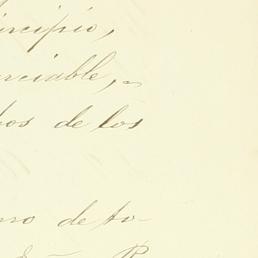 incipio,
rciable,
bos de los
mo de to-